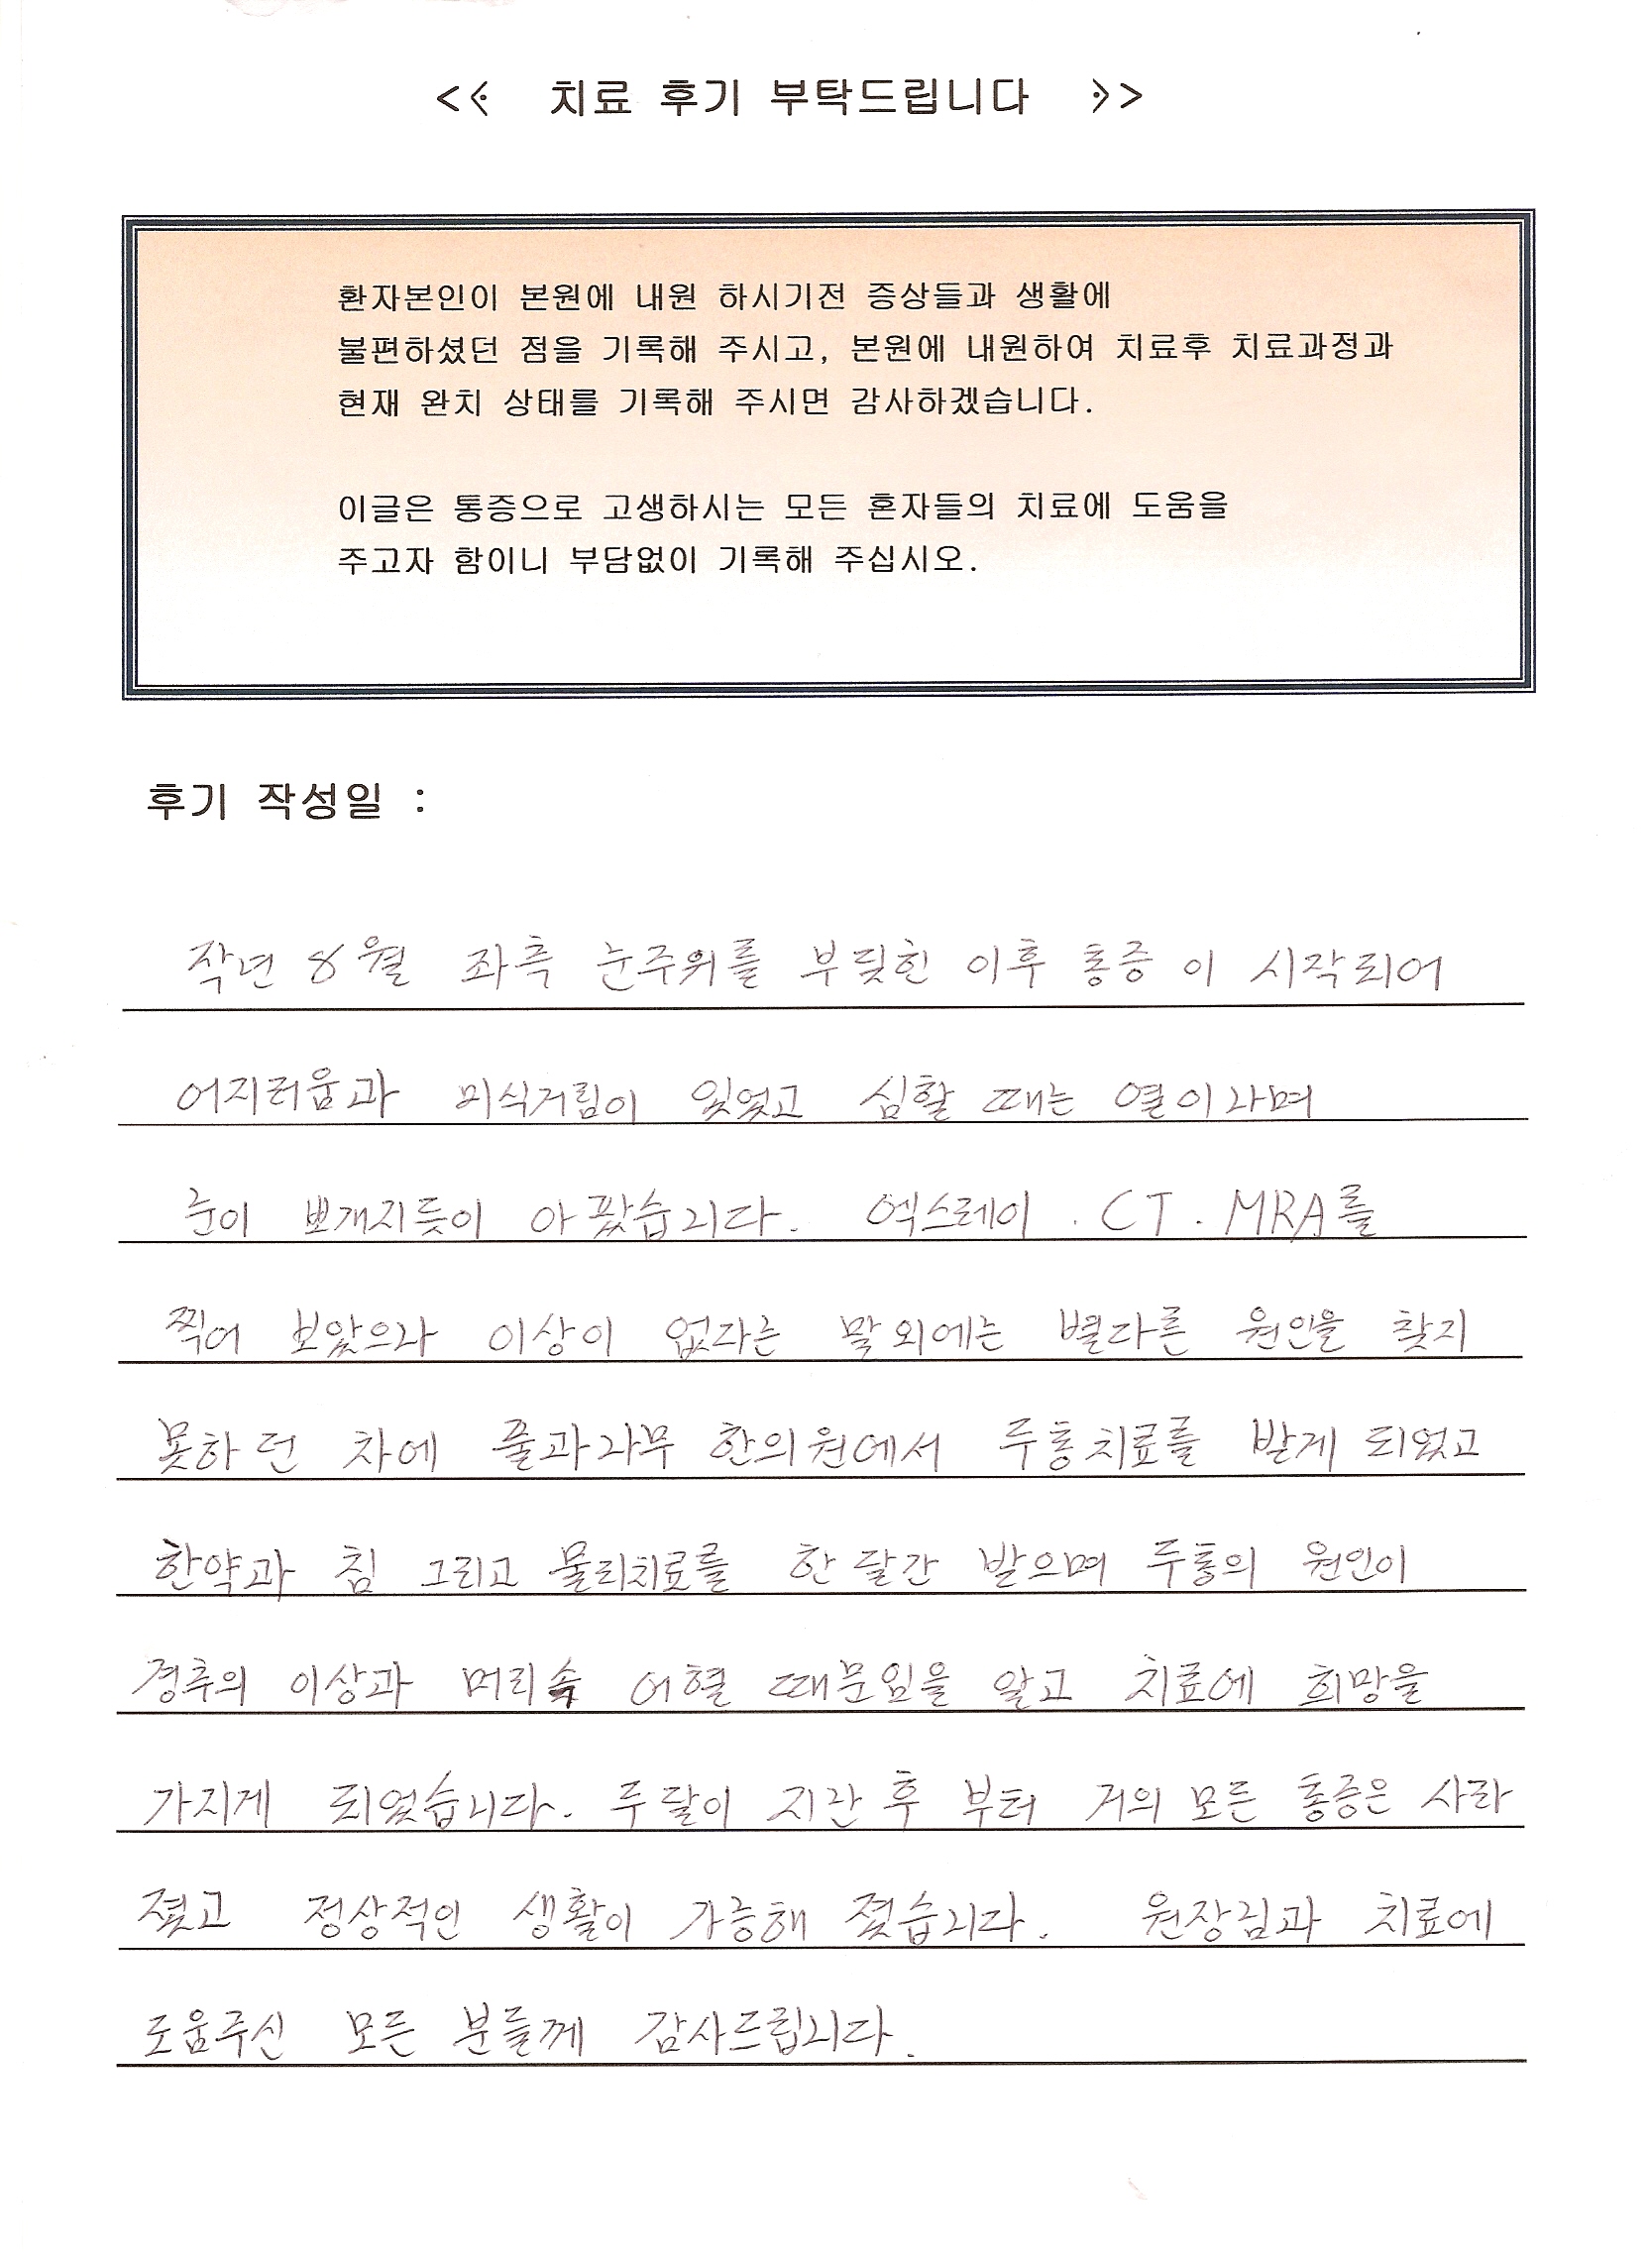 << 치료 후기 부탁드립니다 >>
환자본인이 본원에 내원 하시기전 증상들과 생활에
불편하셨던 점을 기록해 주시고, 본원에 내원하여 치료후 치료과정과
현재 완치 상태를 기록해 주시면 감사하겠습니다.
이글은 통증으로 고생하시는 모든 혼자들의 치료에 도움을
주고자 함이니 부담없이 기록해 주십시오.
후기 작성일 :
작년 8월 좌측 눈주위를 부딪힌 이후 통증이 시작되어
어지러움과 미식거림이 있었고 심할 때는 열이나며
눈이 뽀개지듯이 아팠습니다. 엑스레이. CT. MRA를
찍어 보았으나 이상이 없다는 말 외에는 별다른 원인을 찾지
못하던 차에 풀과나무 한의원에서 두통치료를 받게 되었고
한약과 침 그리고 물리치료를 한달간 받으며 두통의 원인이
경추의 이상과 머리속 어혈 때문임을 알고 치료에 희망을
가지게 되었습니다. 두달이 지난 후 부터 거의 모든 통증은 사라
졌고 정상적인 생활이 가능해 졌습니다. 원장님과 치료에
도움주신 모든 분들께 감사드립니다.